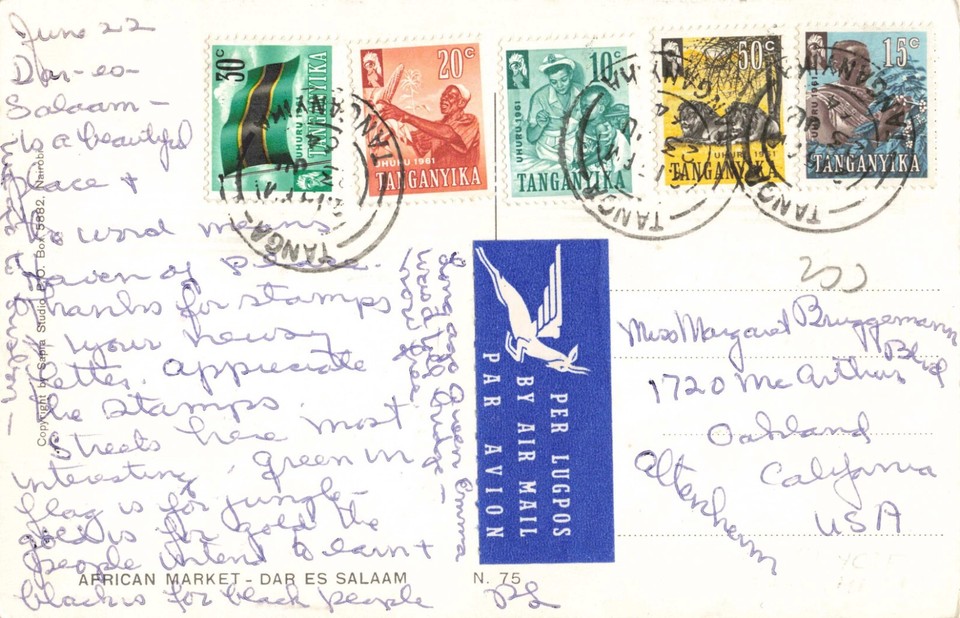 June 22
Dar-es-
Salaam -
is a beautiful
peace +
the word means
haven of peace.
Thanks for stamps
+ your newsy
letter. Appreciate
the stamps.
Streets here most
interesting. Green in
flag is for jungle -
gold is for gold the
people intend to earn +
black is for black people
Copyright by Sapra Studio, P.O. Box 5882, Nairobi
AFRICAN MARKET - DAR ES SALAAM
N. 75
30c
UHURU 1961
TANGANYIKA
20c
UHURU 1961
TANGANYIKA
10c
UHURU 1961
TANGANYIKA
50c
UHURU 1961
TANGANYIKA
15c
UHURU 1961
TANGANYIKA
TANGA
PER LUGPOS
BY AIR MAIL
PAR AVION
Miss Margaret Bruggemann
1720 McArthur Blvd
Oakland
California
USA
Altenheim